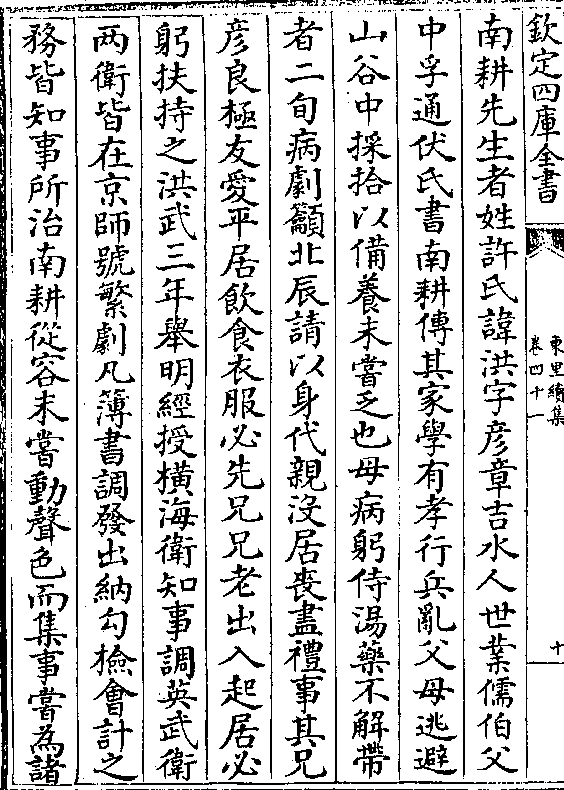 欽定四庫全書
東里續集
卷四十一
十
南耕先生者姓許氏諱洪字彥章吉水人世業儒伯父
中孚通伏氏書南耕傳其家學有孝行兵亂父母逃避
山谷中採拾以備養未嘗乏也母病躬侍湯藥不解帶
者二旬病劇籲北辰請以身代親沒居喪盡禮事其兄
彥良極友愛平居飲食衣服必先兄兄老出入起居必
躬扶持之洪武三年舉明經授橫海衛知事調英武衛
兩衛皆在京師號繁劇凡簿書調發出納勾撿會計之
務皆知事所治南耕從容未嘗動聲色而集事嘗為諸